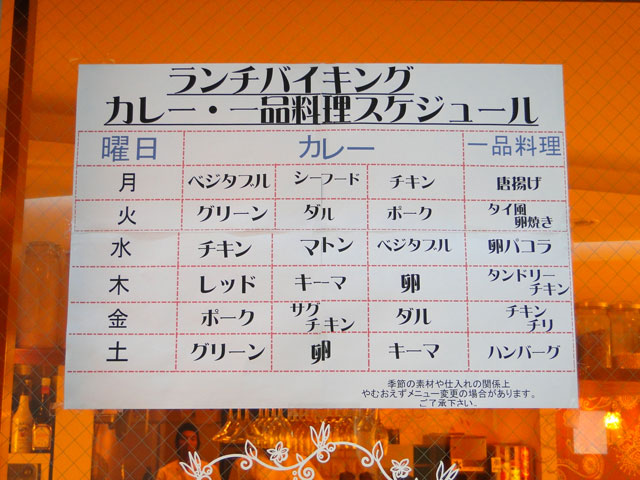 ランチバイキング
カレー・一品料理スケジュール
曜日 カレー 一品料理
月 ベジタブル シーフード チキン 唐揚げ
火 グリーン ダル ポーク タイ風 卵焼き
水 チキン マトン ベジタブル 卵パコラ
木 レッド キーマ 卵 タンドリー チキン
金 ポーク サグ チキン ダル チキン チリ
土 グリーン 卵 キーマ ハンバーグ
季節の素材や仕入れの関係上
やむおえずメニュー変更の場合があります。
ご了承下さい。